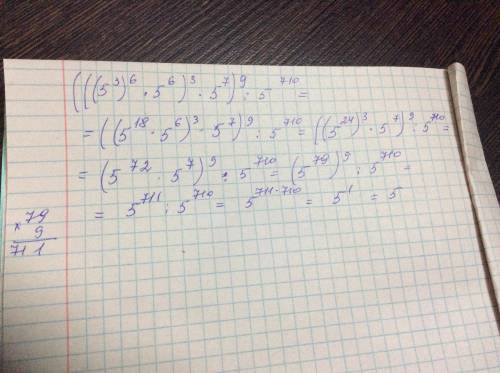 (((5³)⁶ · 5⁶)³ · 5⁷)⁹ : 5⁷¹⁰ =
= ((5¹⁸ · 5⁶)³ · 5⁷)⁹ : 5⁷¹⁰ = ((5²⁴)³ · 5⁷)⁹ : 5⁷¹⁰ =
= (5⁷² · 5⁷)⁹ : 5⁷¹⁰ = (5⁷⁹)⁹ : 5⁷¹⁰ =
= 5⁷¹¹ : 5⁷¹⁰ = 5⁷¹¹⁻⁷¹⁰ = 5¹ = 5
× 79
9
711